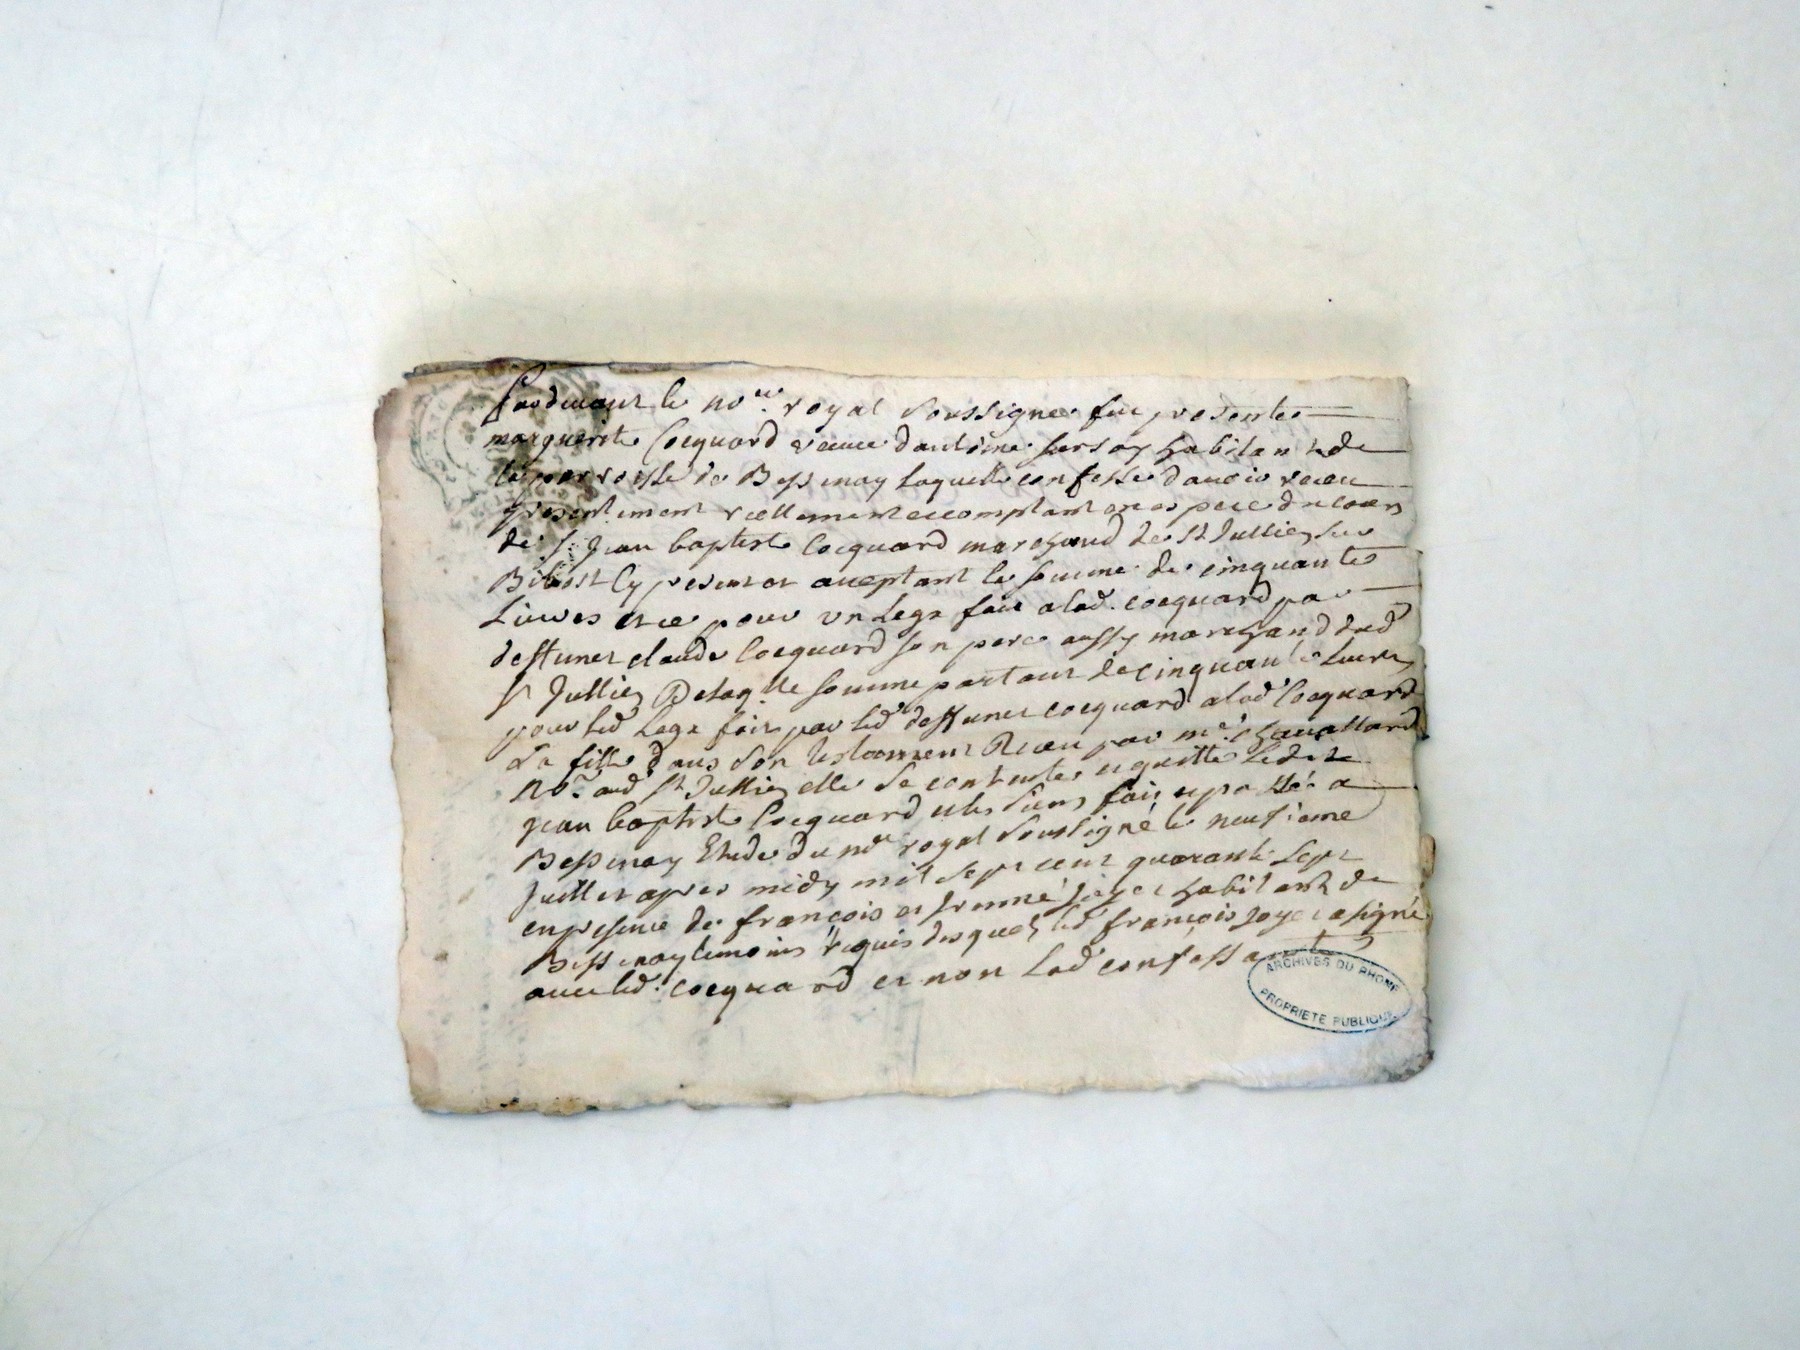 Pardevant le no.re royal soussigné fut presente
marguerite Cocquard veuve d'antoine habitante de
la parroisse de Bessenay laquelle confesse d'avoir receu
presentement reellement et comptant en espece du cours
de s.r Jean baptiste Cocquard marchand de St Jullien sur
Bibost Cy present et acceptant la somme de cinquante
Livres et ce pour un legs fait a lad. cocquard par
deffunct claude Cocquard son pere aussy marchand dud.
St Jullien De laq.lle somme partant de cinquante Livres
pour led. Legs fait par led. deffunct cocquard a lad. Cocquard
sa fille dans son testament Receu par m.e chavallard
no.re aud. St Jullien elle se contente et quitte ledit
jean baptiste Cocquard et les siens fait et passé a
Bessenay Etude du no.re royal soussigné le neufieme
Juillet apres midy mil sept cent quarante sept
en presence de françois et habitant de
Bessenay temoins requis desquels led. françois a signé
avec led. cocquard et non lad. confessante
ARCHIVES DU RHONE
PROPRIETE PUBLIQUE